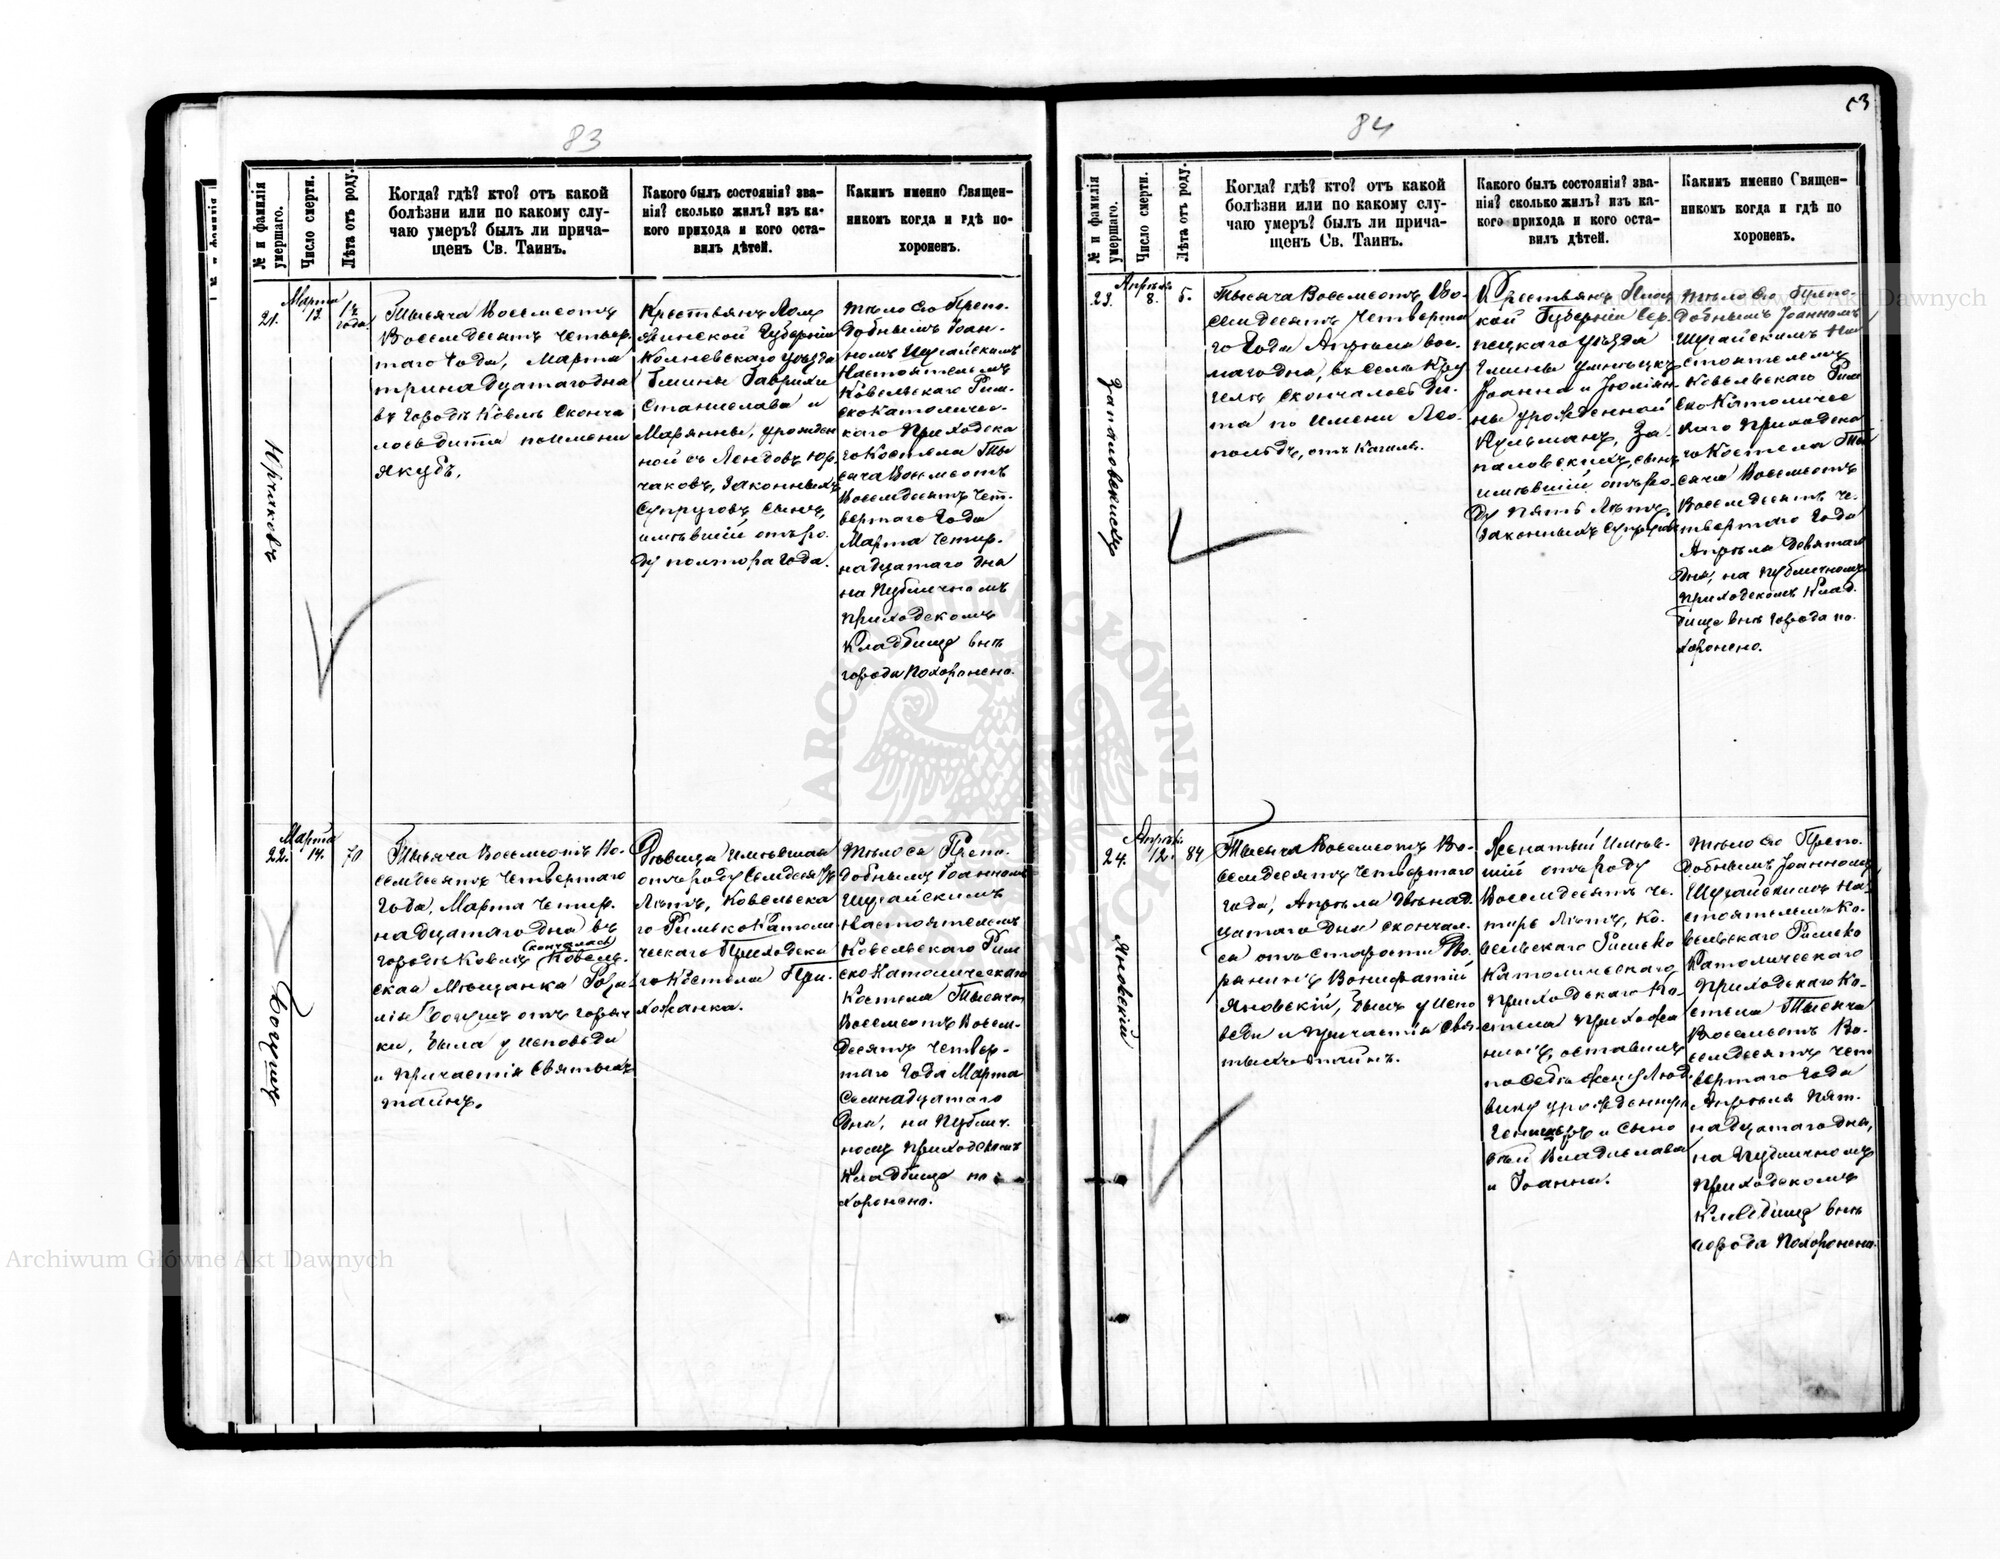 83
№ и фамилія умершаго.
Число смерти.
Лѣта отъ роду.
Когда? гдѣ? кто? отъ какой
болѣзни или по какому слу-
чаю умеръ? былъ ли прича-
щенъ Св. Таинъ.
Какого былъ состоянія? зва-
нія? сколько жилъ? изъ ка-
кого прихода и кого оста-
вилъ дѣтей.
Какимъ именно Священ-
никомъ когда и гдѣ по-
хороненъ.
21.
Марта
13.
1½
года.
Юрчаковъ
Тысяча Восемсотъ
Восемдесятъ Четвер-
таго Года, Марта
тринадцатаго дна
въ городѣ Ковлѣ Сконча
лось дитя по имени
Якубъ,
Крестьянъ Лом
жинской Губерніи
Колневскаго уѣзда
Гмины Гаврихи
Станислава и
Маріянны, урожден
ной съ Лендовъ Юр
чаковъ, Законныхъ
Супруговъ Сынъ,
имѣвшій отъ ро-
ду полтора года.
тѣло его Препо-
добнымъ Іоан-
номъ Шугайскимъ
Настоятелемъ
Ковельскаго Рим-
ско Католичес-
каго Приходска
го Костела Ты
сяча Восемсотъ
Восемдесятъ Чет-
вертаго Года
Марта Четыр-
надцатаго дна
на Публичномъ
приходскомъ
Кладбищѣ внѣ
города Похоронено.
22.
Марта
14.
70
Богушъ
Тысяча Восемсотъ Во-
семдесятъ Четвертаго
Года, Марта Четыр-
надцатаго дна въ
городѣ Ковлѣ скончалась Ковель-
ская Мѣщанка Роза-
лія Богушъ отъ горяч
ки, была у исповѣди
и Причастія Святыхъ
тайнъ.
Дѣвица имѣвшая
отъ роду Семдесятъ
Лѣтъ, Ковельска
го Римско Католи
ческаго Приходска
го Костела При-
хожанка.
тѣло ея Препо-
добнымъ Іоанномъ
Шугайскимъ
Настоятелемъ
Ковельскаго Рим
ско Католическаго
Костела Тысяча
Восемсотъ Восем-
десятъ Четвер-
таго Года Марта
Семнадцатаго
Дна, на Публич-
номъ Приходскомъ
Кладбищѣ по-
хоронено.
84
53
№ и фамилія умершаго.
Число смерти.
Лѣта отъ роду.
Когда? гдѣ? кто? отъ какой
болѣзни или по какому слу-
чаю умеръ? былъ ли прича-
щенъ Св. Таинъ.
Какого былъ состоянія? зва-
нія? сколько жилъ? изъ ка-
кого прихода и кого оста-
вилъ дѣтей.
Какимъ именно Священ-
никомъ когда и гдѣ по
хороненъ.
23.
Апрѣля
8.
5.
Тысяча Восемсотъ Во-
семдесятъ Четверта
го Года Апрѣля вос-
маго дна, въ селѣ
скончалось Ди-
тя по имени Лео-
польдъ, отъ Кашля.
Крестьянъ Плоц
кой Губерніи Сер-
пецкаго уѣзда
Гмины
Іоанна и Юліян-
ны урожденной
Кульманъ, За-
паловскихъ, сынъ
имѣвшій отъ ро-
ду пять Лѣтъ,
Законныхъ Супруговъ
тѣло его Препо-
добнымъ Іоанномъ
Шугайскимъ На
стоятелемъ
Ковельскаго Рим
ско Католичес
каго Приходска
го Костела Ты
сяча Восемсотъ
Восемдесятъ Че-
твертаго Года
Апрѣля Девятаго
Дна, на Публичномъ
Приходскомъ Клад-
бищѣ внѣ города по-
хоронено.
24.
Апрѣля
12.
84
Яновскій
Тысяча Восемсотъ Во-
семдесятъ Четвертаго
года, Апрѣля двѣнад
цатаго Дна скончал-
ся отъ старости Дво-
рянинъ Вонифатій
Яновскій, былъ у испо
вѣди и причастія Свя-
тыхъ тайнъ.
Женатый имѣв-
шій отъ роду
Восемдесятъ че-
тыре Лѣтъ, Ко-
вельскаго Римско
Католическаго
приходскаго Ко-
стела прихожа
нинъ, оставилъ
по себѣ жену Люд-
вику урожденную
и Сыно
вей Владислава
и Іоанна.
тѣло его Препо-
добнымъ Іоанномъ
Шугайскимъ На-
стоятелемъ Ко-
вельскаго Римско
Католическаго
Приходскаго Ко-
стела Тысяча
Восемсотъ Во-
семдесятъ Чет
вертаго Года
Апрѣля Пят-
надцатаго дна,
на Публичномъ
Приходскомъ
Кладбищѣ внѣ
города Похоронено.
Archiwum Główne Akt Dawnych
Archiwum Główne Akt Dawnych
ARCHIWUM GŁÓWNE AKT DAWNYCH